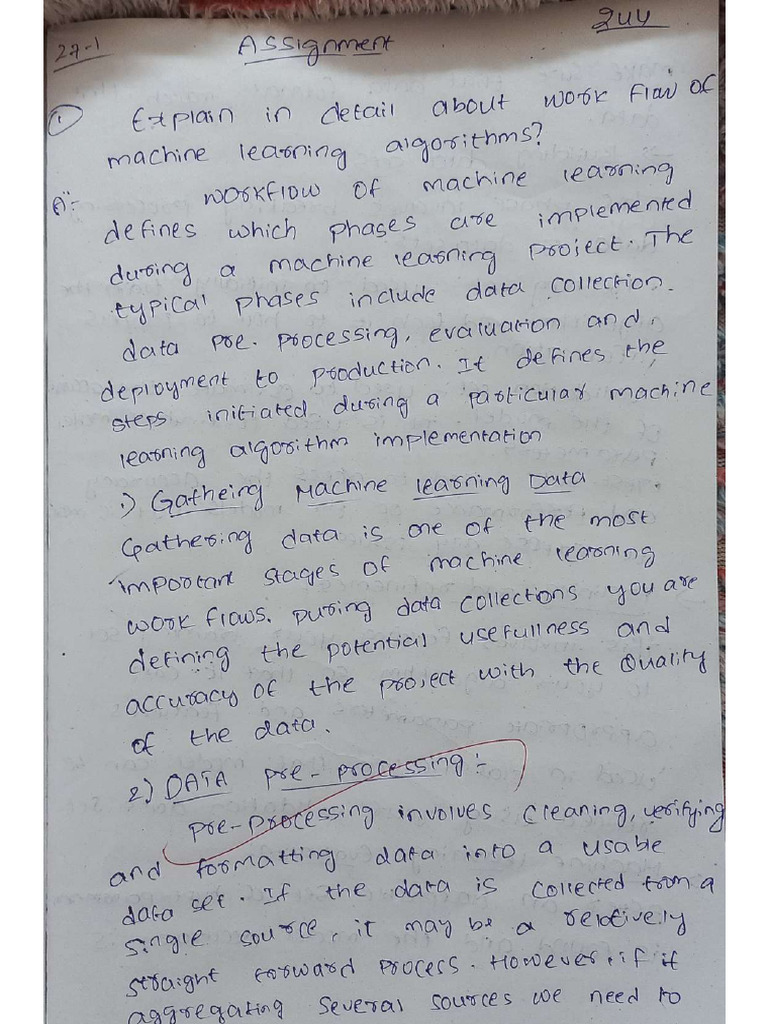 27-1
Assignment
244
1 Explain in detail about work flow of
machine learning algorithms?
A:- workflow of machine learning
defines which phases are implemented
during a machine learning project. The
typical phases include data collection.
data pre-processing, evaluation and
deployment to production. It defines the
steps initiated during a particular machine
learning algorithm implementation
1) Gatheing Machine learning Data
Gathering data is one of the most
important stages of machine learning
work flows. During data collections you are
defining the potential usefullness and
accuracy of the project with the Quality
of the data.
2) DATA pre-processing:-
pre-processing involves cleaning, verifying
and formatting data into a usable
data set. If the data is collected from a
single source, it may be a relatively
straight forward process. However, if it
aggregating several sources we need to